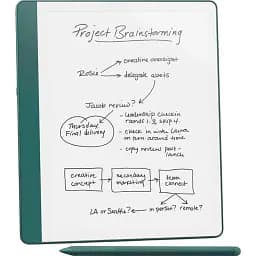 Project Brainstorming
creative oversight
Rosie
delegate assets
Jacob review?
Thursday:
Final delivery
- leadership check in
rounds 1 & skip 4.
- check in with
on turn around time
- copy review post-
launch
creative
concept
secondary
marketing
team
connect
LA or Seattle?
in person?
remote?